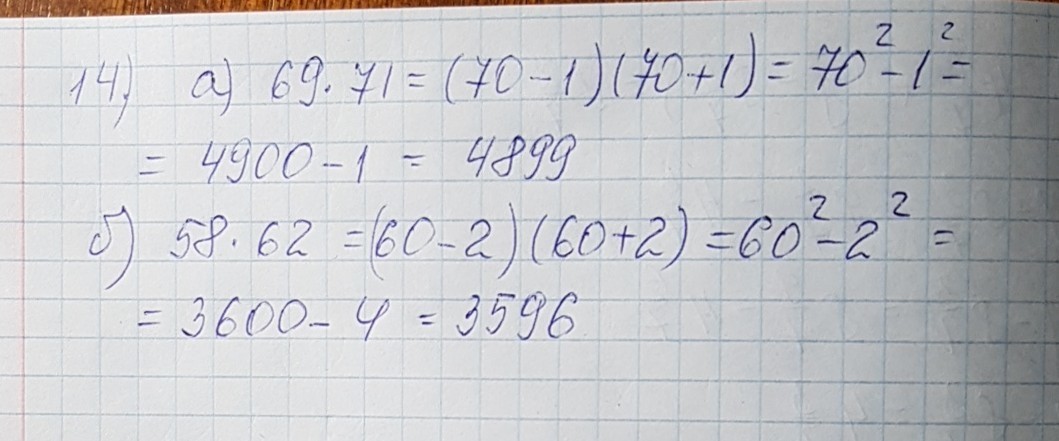 14) а) 69·71=(70-1)(70+1)=70²-1²=
= 4900-1 = 4899
б) 58·62 =(60-2)(60+2)=60²-2² =
= 3600-4 = 3596